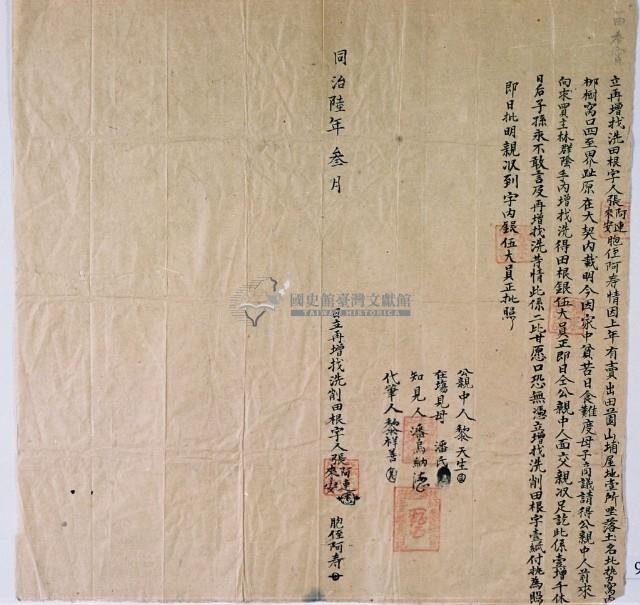 立再增找洗田根字人張阿連來安胞侄阿壽情因上年有賣出田園山埔屋地壹所坐落土名北勢窩內
柳樹窩口四至界趾原在大契內載明今因家中貧苦日食難度母子商議請得公親中人前來
向求買主林群陰手內增找洗得田根銀伍大員正即日仝公親中人面交親收足訖此係壹增千休
日后子孫永不敢言及再增找洗等情此係二比甘愿口恐無憑立增找洗削田根字壹紙付執為照
即日批明親收到字內銀伍大員正批照
公親中人黎天生
在場見母潘氏
知見人潘烏納
代筆人黎祥善
同治陸年叁月
立再增找洗削田根字人張阿連來安胞侄阿壽
國史館臺灣文獻館
TAIWAN HISTORICA